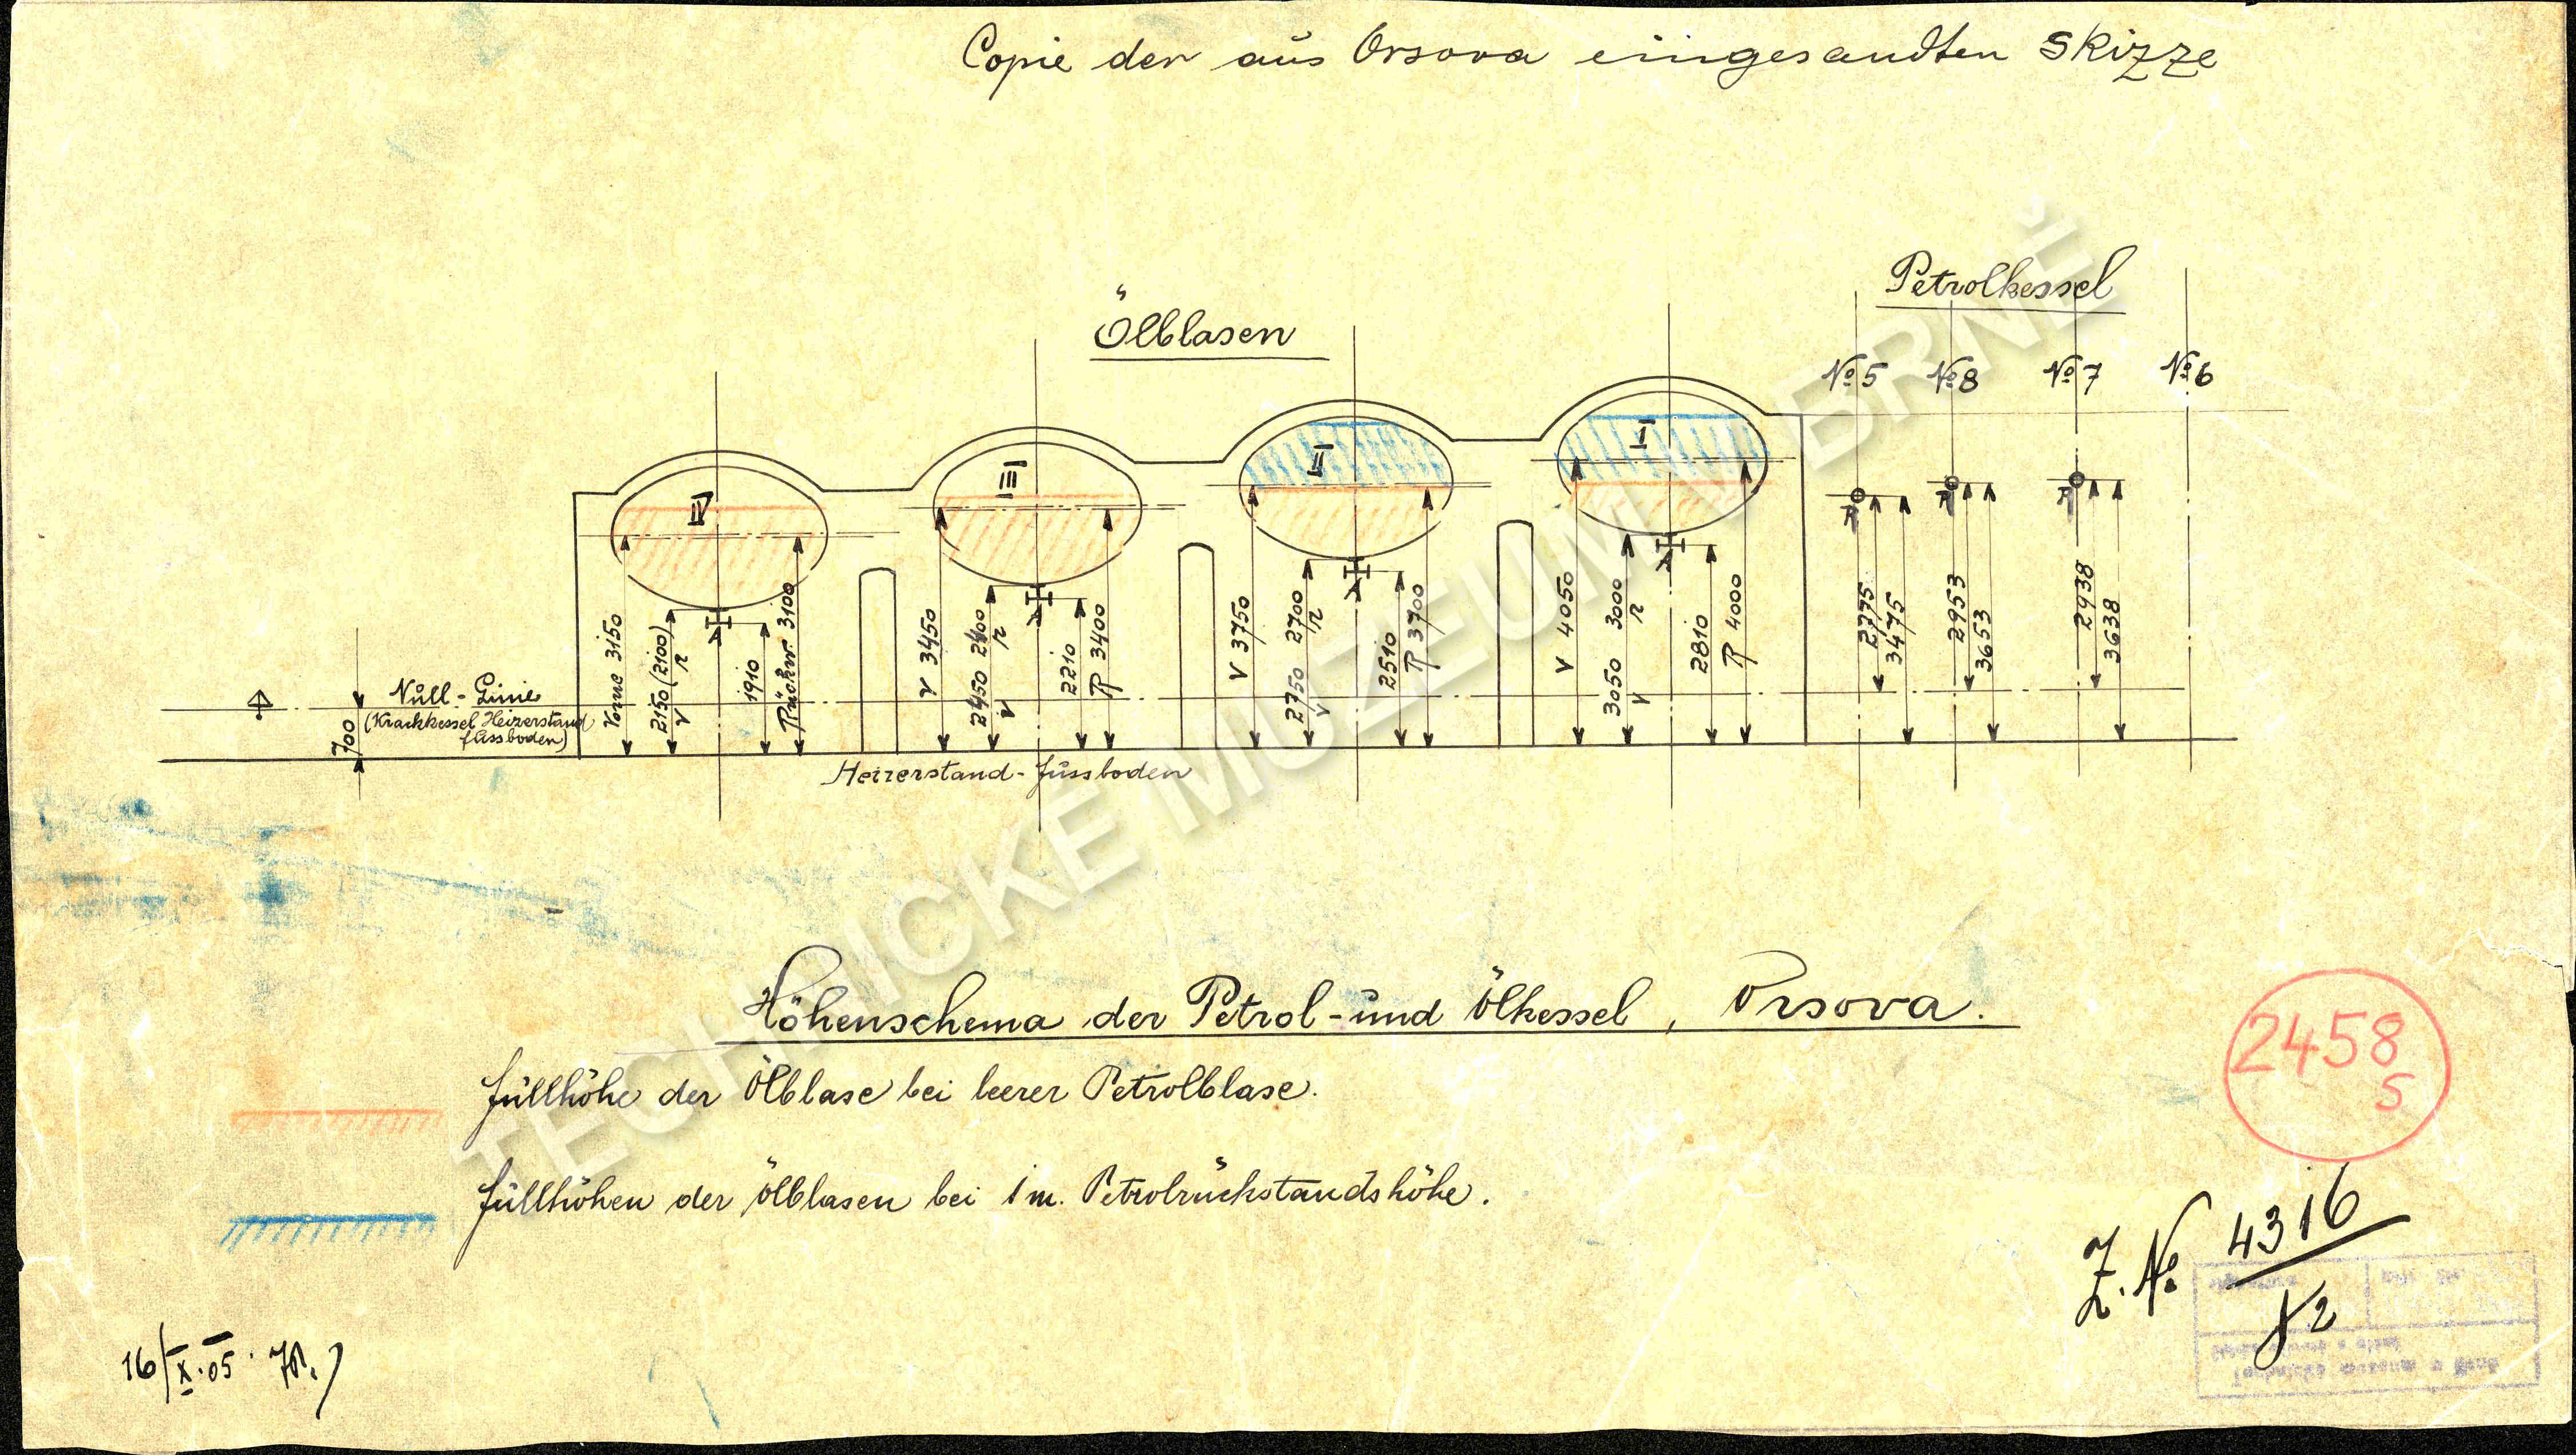 Copie der aus Orsova eingesandten Skizze
Petrolkessel
Ölblasen
№ 5
№ 8
№ 7
№ 6
IV
III
II
I
Vorne 3150
2150 (2100)
v r
1910
Rückw. 3100
V 3450
2450 2400
v r
2210
R 3400
V 3750
2750 2700
v r
2510
R 3700
V 4050
3050 3000
v r
2810
R 4000
2775
3475
2953
3653
2938
3638
Null-Linie
(Krackkessel Heizerstand
fussboden)
700
Heizerstand-Fussboden
Höhenschema der Petrol- und Ölkessel, Orsova.
Füllhöhe der Ölblase bei leerer Petrolblase.
Füllhöhen der Ölblasen bei 1 m. Petrolrückstandshöhe.
2458
5
Z. № 4316
16/X.05.
TECHNICKÉ MUZEUM V BRNĚ
Technické museum v Brně